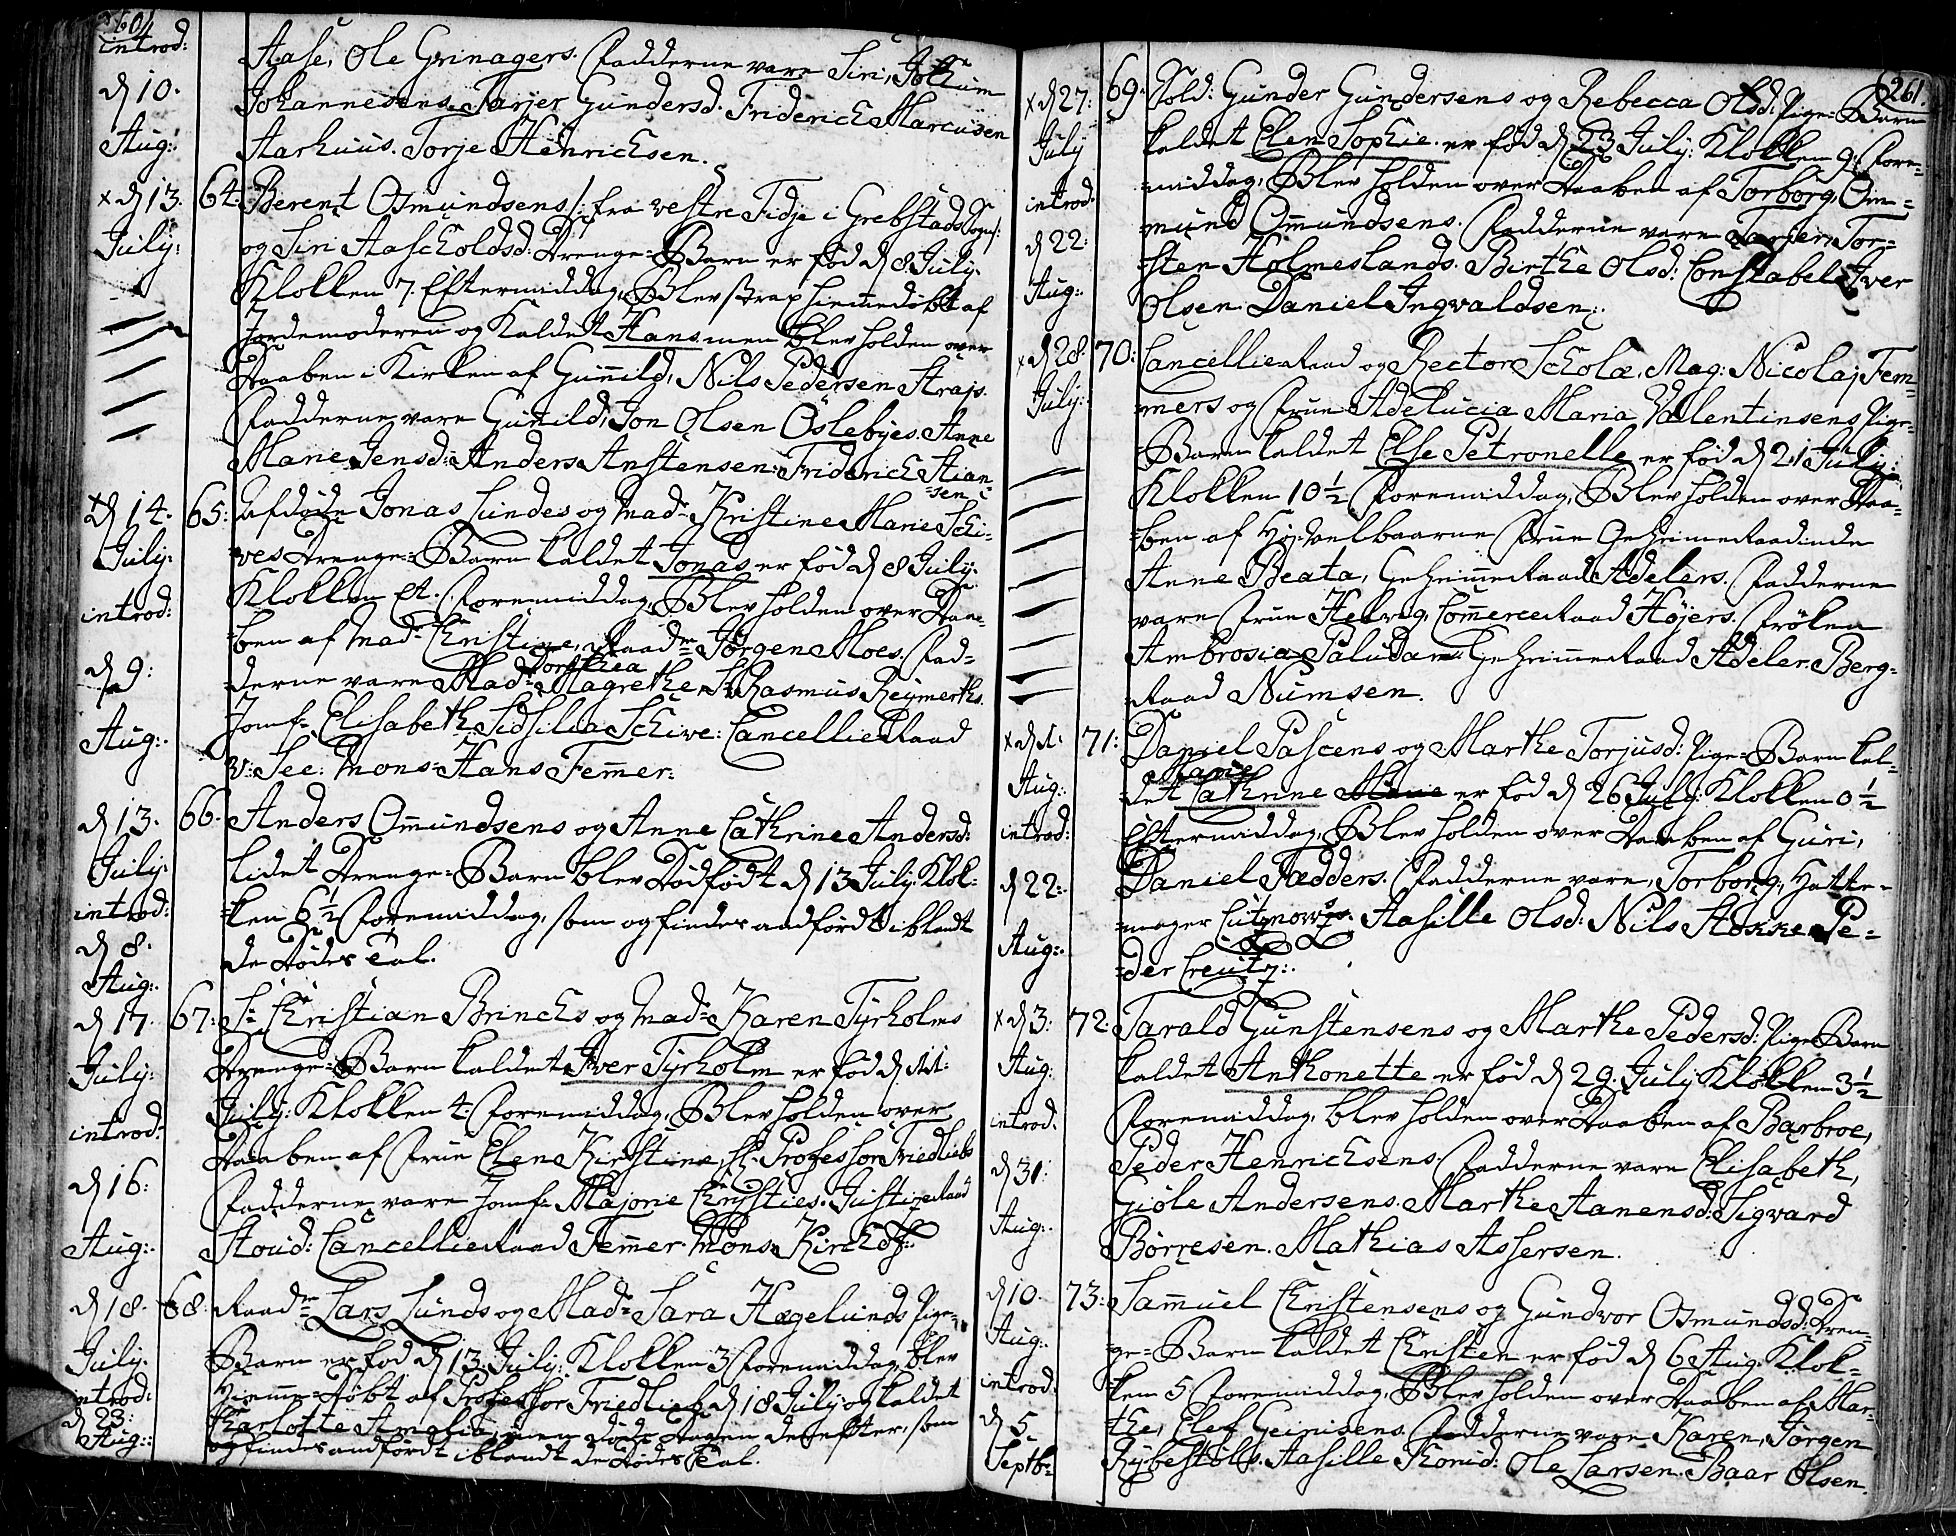 260.
introd:
d 10.
Aug:
Aase, Ole Grinagers. Fadderne vare Siri, Jochum
Johannesens. Tarjer Gundersd: Friderich Marcusen
Aarhuus. Torje Henrichsen.
x d 13. July: 64.
Berent Osmundsens /: fra vestre Tidje i Grebstads Sogn:/
og Siri Aascholdsd: Drenge-Barn er fød d 8 July.
Klokken 7. Eftermiddag, Blev strax hiemedøbt af
Jordemoderen og kaldet Hans men blev holden over
Daaben i Kirken af Gunnild, Nils Pedersen Strajs.
Fadderne vare Gunild, Jon Olsen Oslebyes. Anne
Marie Jensd: Anders Anstensen. Friderich Stian-
-sen
x d 14. July. introd: d 9: Aug: 65:
Afdøde Jonas Lundes og Mad: Kristine Marie Schi-
ves Drenge-Barn kaldet Jonas er fød d 8 July.
Klokken et. Foremiddag. Blev holden over Daa-
-ben af Mad: Christine, Raadm Jørgen Moes. Fad-
derne vare Mad: Dorthea Magrethe, Sr. Rasmus Reymerths.
Jomf: Elisabeth Sidsilia Schive: Cancellie Raad
v: See: Mons: Hans Femer:
d 13. July. introd: d 8. Aug: 66.
Anders Omundsens og Anne Cathrine Andersd:
lidet Drenge-Barn blev Dødfødt d 13 July. Klok-
-ken 6½ Foremiddag, som og findes anført iblandt
de Dødes Tal.
d 17. July: introd: d 16: Aug: 67:
Sr: Christian Brinchs og Mad: Karen Tyrholms
Drenge-Barn kaldet Iver Tyrholm er fød d 11:
July: Klokken 4. Foremiddag, Blev holden over
Daaben af Frue Elen Kirstine, Hr. Professor Friedliebs
Fadderne vare Jomf: Majorie Christies. Justice Raad
Stoud: Cancellie Raad Femer. Mons: Kirchhof:
d 18. July. introd: d 23: Aug: 68.
Raadm: Lars Lunds og Mad: Sara Hægelunds Pige-
Barn er fød d 13. July: Klokken 3 Foremiddag, blev
Hiemme-Døbt af Professor Friedlieb d 18 July og kaldet
Charlotte Amalia, men døde Dagen derefter, som
og findes anført iblandt de Dødes Tal.
261.
x d 27: July introd: d 22: Aug: 69.
Sold: Gunder Gundersens og Rebecca Olsd: Pige-Barn
kaldet Elen Sophie. er fød d 23 July: Klokken 9: Fore-
-middag, Blev holden over Daaben af Torborg, Om-
mund Omundsens. Fadderne vare Tarjer, Tor-
-sten Holmeslands. Birthe Olsd: Constabel Iver
Olsen. Daniel Ingvaldsen:
x d 28: July: 70:
Cancellie Raad og Rector Scholæ, Mag: Nicolaj Fem-
mers og Frue Adelucia Maria Vallentinsens Pige-
-Barn kaldet Else Petronelle er fød d 21 July:
Klokken 10½ Foremiddag, Blev holden over Daa-
-ben af Høyvelbaarne Frue Geheimeraadinde
Anne Beata, Geheimeraad Adelers. Fadderne
vare Frue Helvig, Commerceraad Høyers. Frøken
Ambrosia Paludan: Geheimeraad Adeler. Berg-
-Raad Numsen.
x d 1. Aug: introd: d 22: Aug: 71:
Daniel Pascens og Marthe Torjusd: Pige-Barn kal-
-det Marie Cathrine er fød d 26 July: Klokken 0½
Eftermiddag, Blev holden over Daaben af Guri,
Daniel Fædders. Fadderne vare, Torborg, Hatte-
-mager Lutzows. Aasille Olsd: Nils Stokke. Pe-
-der Creutz:
x d 3: Aug: introd. d 31: Aug: 72:
Tarald Gunstensens og Marthe Pedersd: Pige Barn
kaldet Anthonette er fød d 29. July Klokken 3½
Foremiddag, blev holden over Daaben af Barbroe,
Peder Henrichsens. Fadderne vare Elisabeth,
Giøle Andersens. Marthe Aanensd: Sigvard
Børresen. Mathias Assersen.
d 10. Aug: introd: d 5. Septb: 73:
Samuel Christensens og Gundvor Osmundsd: Dren-
ge-Barn kaldet Christen er fød d 6 Aug: Klok-
-ken 5 Foremiddag, Blev holden over Daaben af Mar-
the, Elef Geinisens. Fadderne vare Karen, Jørgen
Rybestøls. Aasille Konud: Ole Larsen. Baar Olsen.